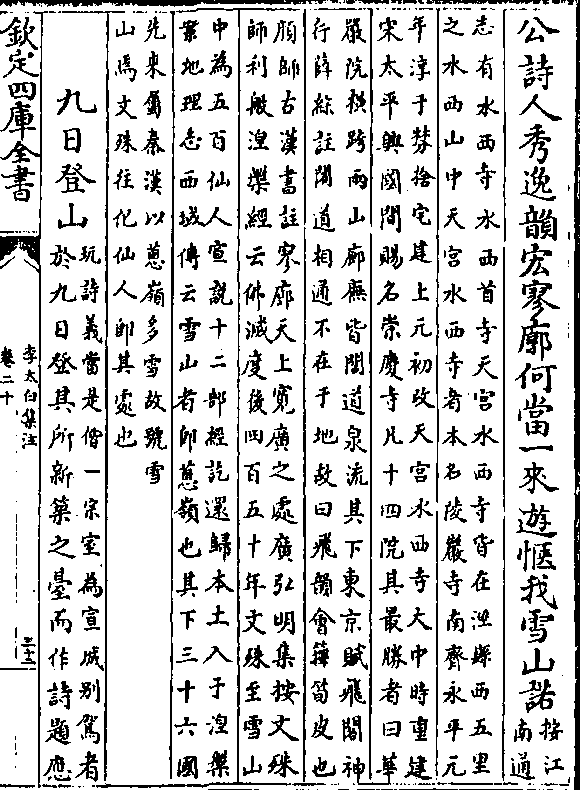 公詩人秀逸韻宏寥廓何當一來遊愜我雪山諾
按江
南通
志有水西寺水西首寺天宮水西寺皆在涇縣西五里
之水西山中天宮水西寺者本名陵嚴寺南齊永平元
年淳于棼捨宅建上元初改天宮水西寺大中時重建
宋太平興國間賜名崇慶寺凡十四院其最勝者曰華
嚴院橫跨兩山廊廡皆閣道泉流其下東京賦飛閣神
行薛綜註閣道相通不在于地故曰飛韻會籜筍皮也
顏師古漢書註寥廓天上寬廣之處廣弘明集按文殊
師利般湼槃經云佛滅度後四百五十年文殊至雪山
中為五百仙人宣說十二部經訖還歸本土入于湼槃
案地理志西域傳云雪山者即蔥嶺也其下三十六國
先來屬秦漢以蔥嶺多雪故號雪
山焉文殊往化仙人即其處也
九日登山
玩詩義當是偕一宗室為宣城別駕者
於九日登其所新築之臺而作詩題應
欽定四庫全書
李太白集注
卷二十